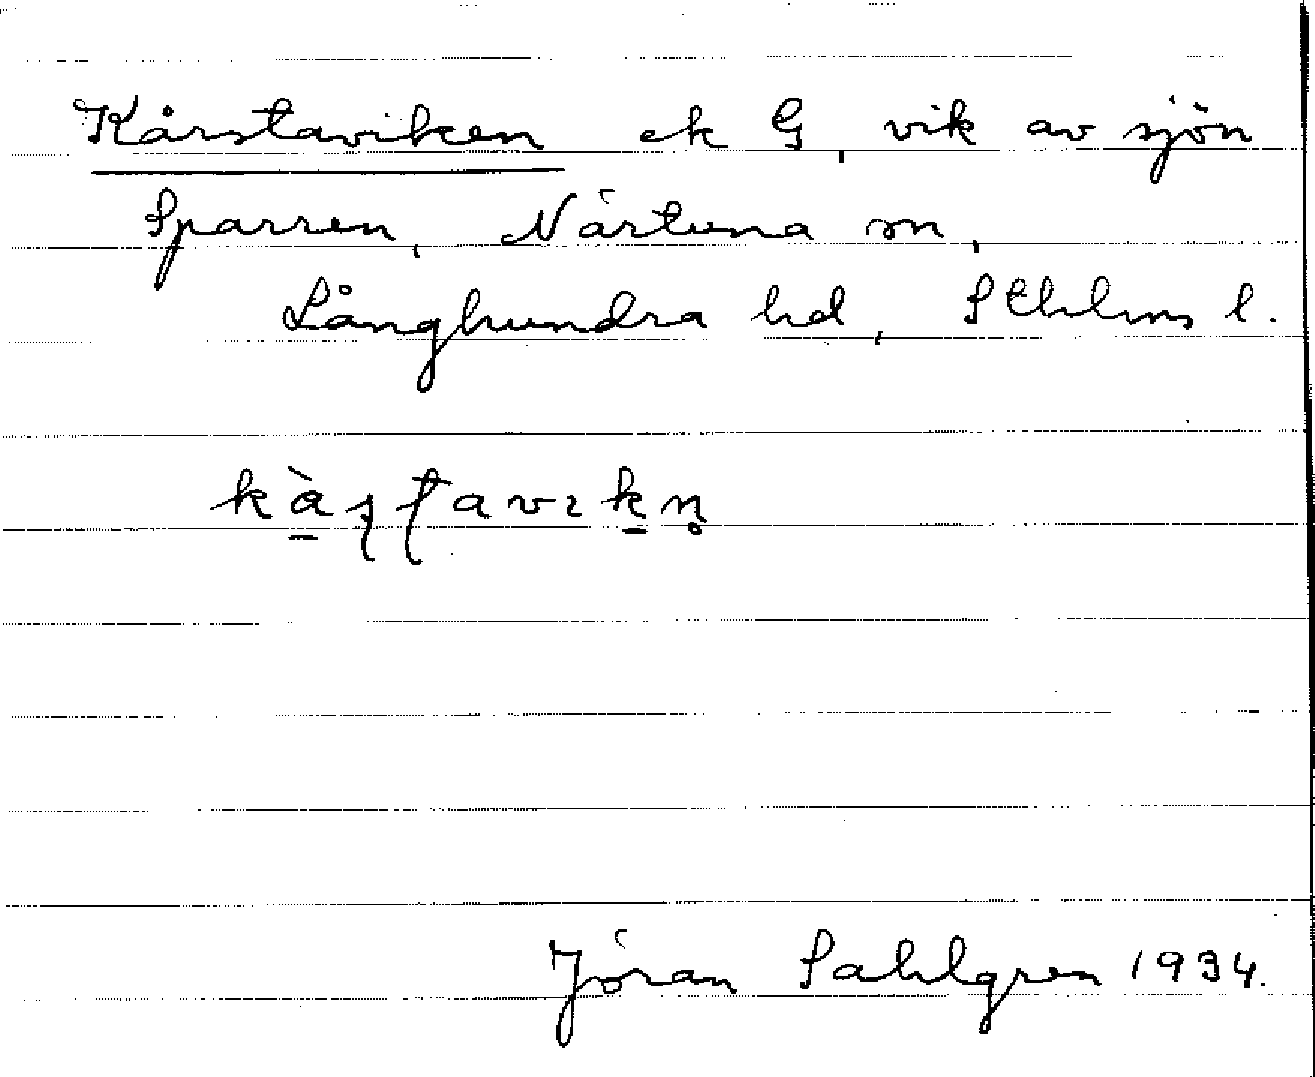 Kårstaviken ek G, vik av sjön
Sparren, Närtuna sn,
Långhundra hd, Sthlms l.
Jöran Sahlgren 1934.